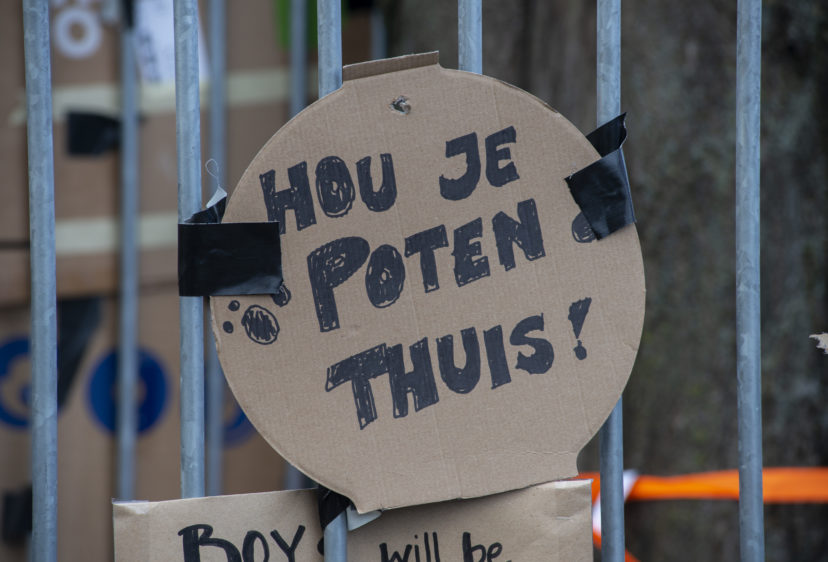 HOU JE
POTEN
THUIS!
BOY
will be